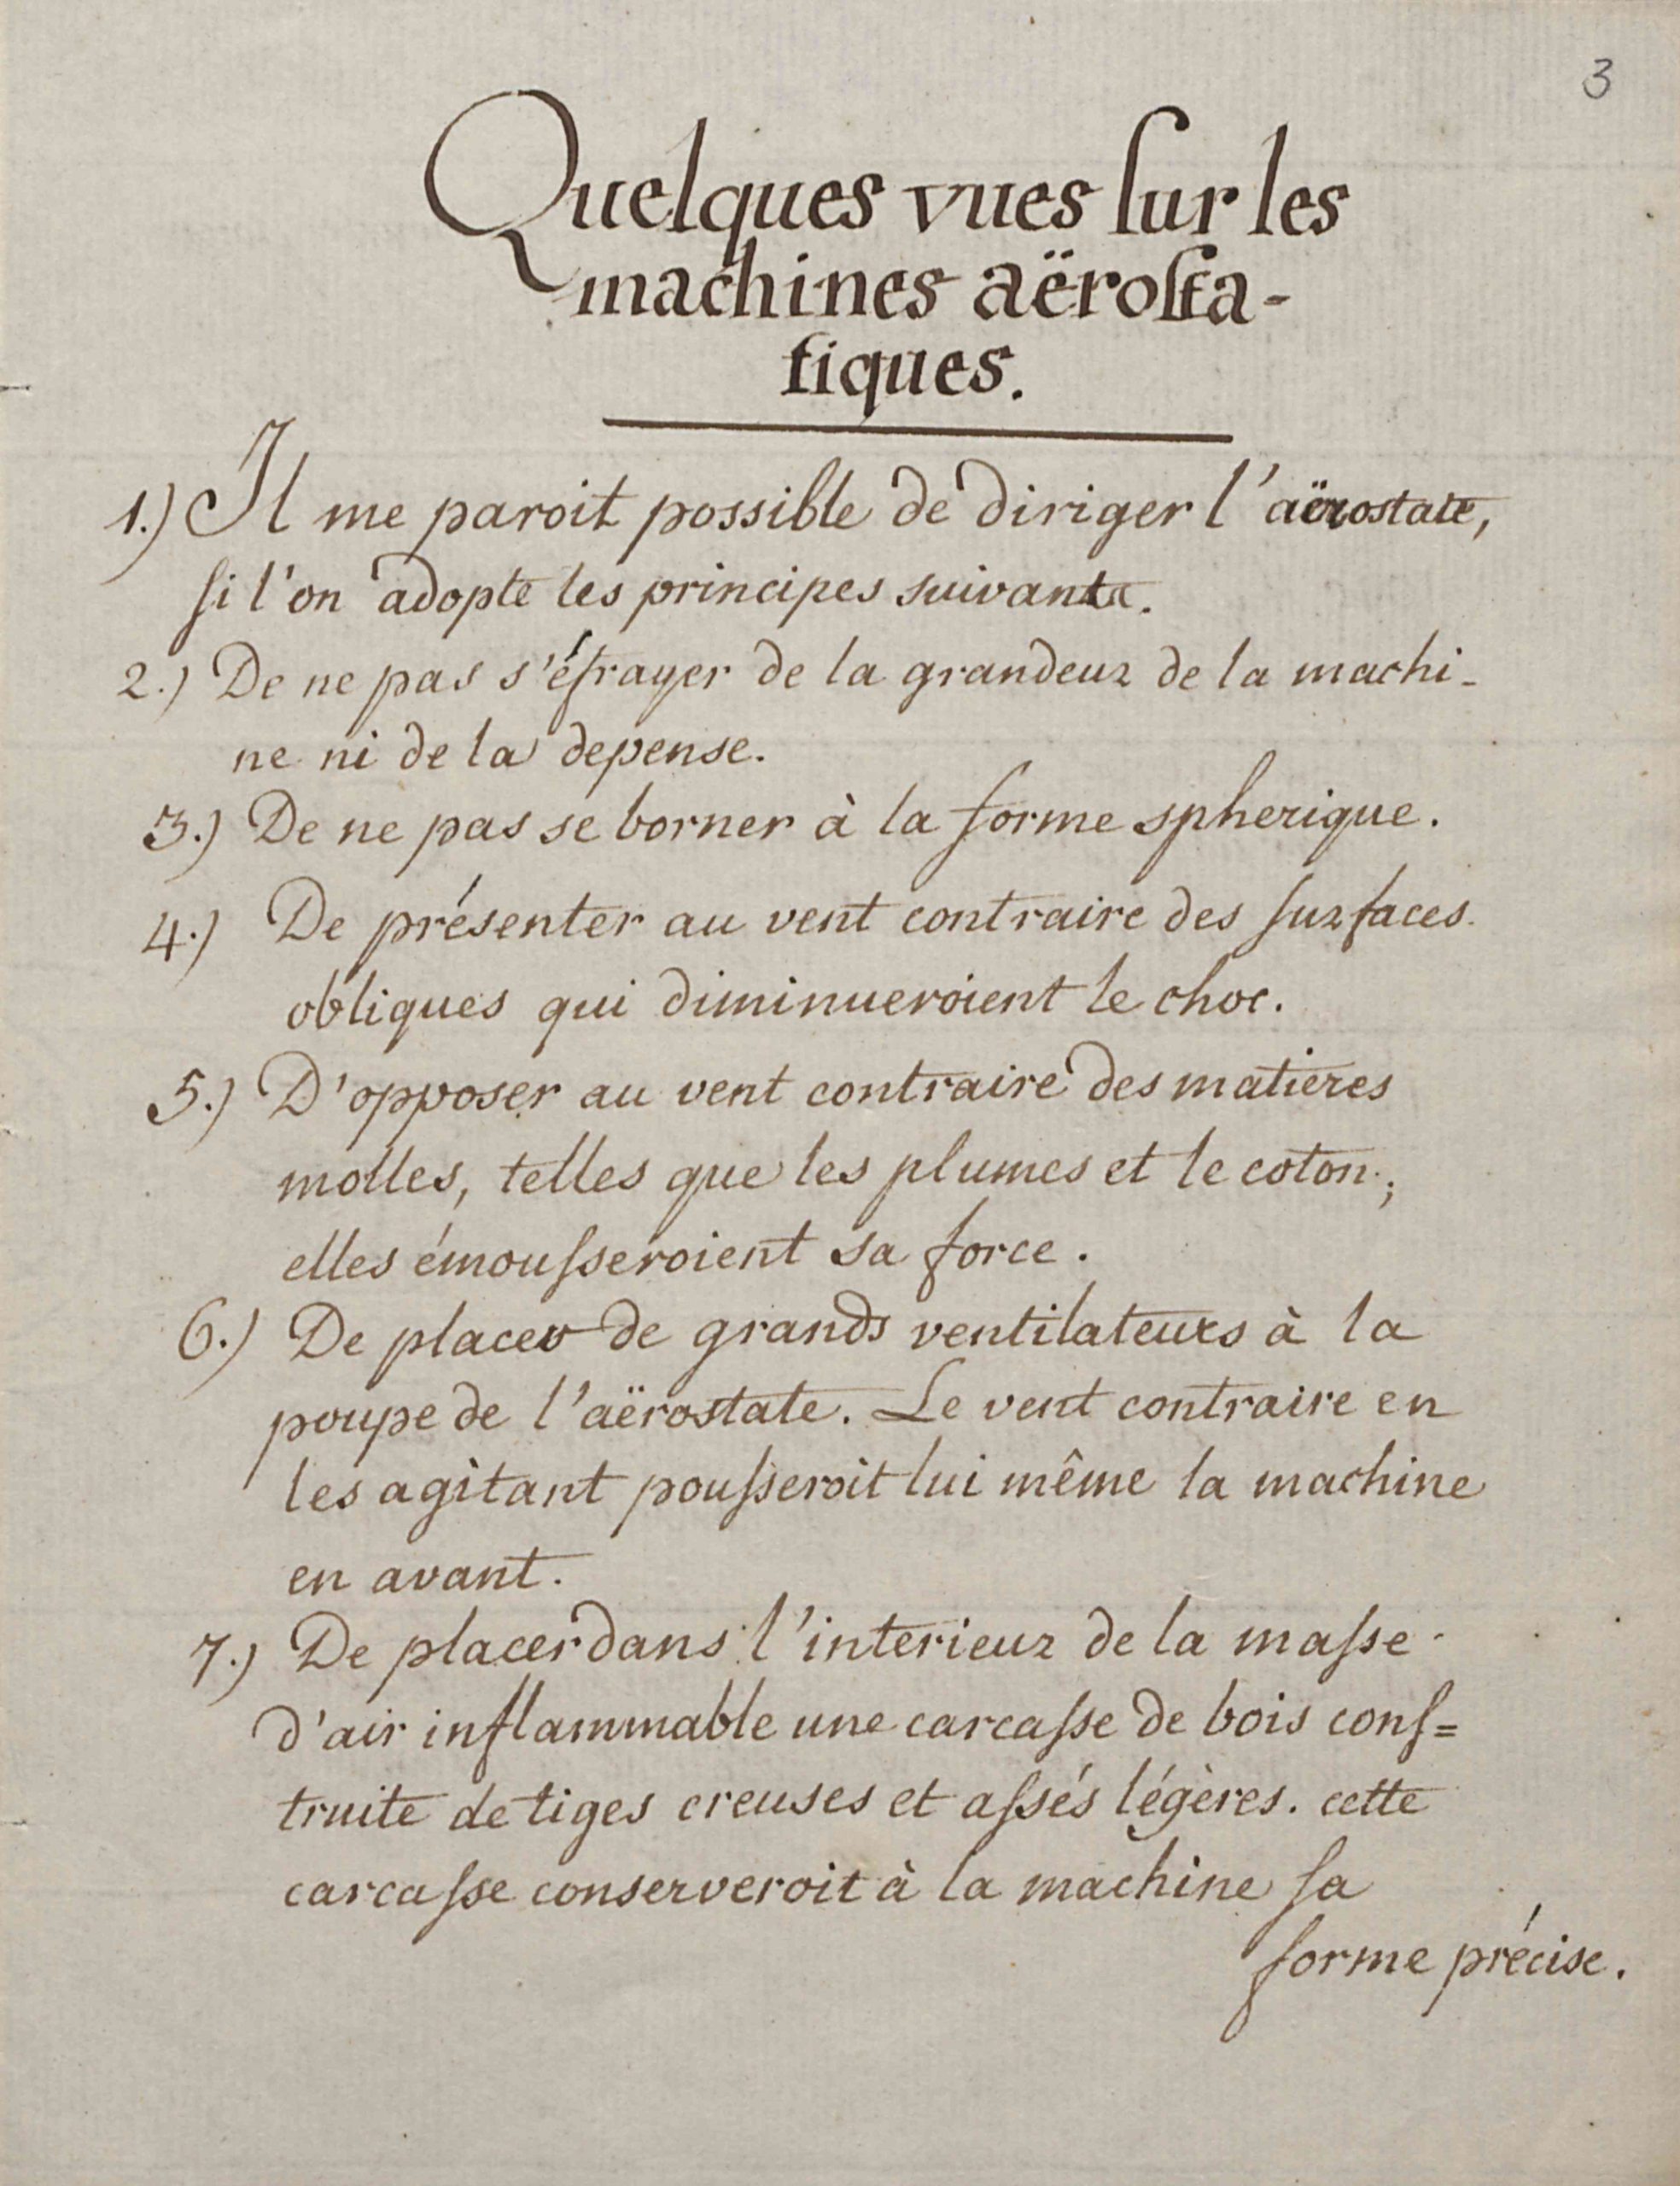 3
Quelques vues sur les
machines aërosta-
tiques.
1.) Il me paroit possible de diriger l'aërostate,
si l'on adopte les principes suivants.
2.) De ne pas s'éfrayer de la grandeur de la machi-
ne ni de la depense.
3.) De ne pas se borner à la forme spherique.
4.) De présenter au vent contraire des surfaces
obliques qui diminueroient le choc.
5.) D'opposer au vent contraire des matieres
molles, telles que les plumes et le coton;
elles émousseroient sa force.
6.) De placer de grands ventilateurs à la
poupe de l'aërostate. Le vent contraire en
les agitant pousseroit lui même la machine
en avant.
7.) De placer dans l'interieur de la masse
d'air inflammable une carcasse de bois cons=
truite de tiges creuses et assés légères. cette
carcasse conserveroit à la machine sa
forme précise.